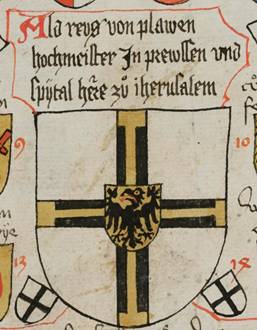 Als reys von plawen
hochmeister In prewssen vnd
spytal here zu iherusalem
9
10
13
14